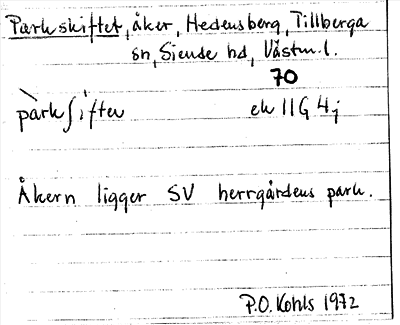 Parkskiftet, åker, Hedensberg, Tillberga
sn, Siende hd, Västm. l.
70
pàrkʃiften ek 11G 4j
Åkern ligger SV herrgårdens park.
P.O. Kohls 1972